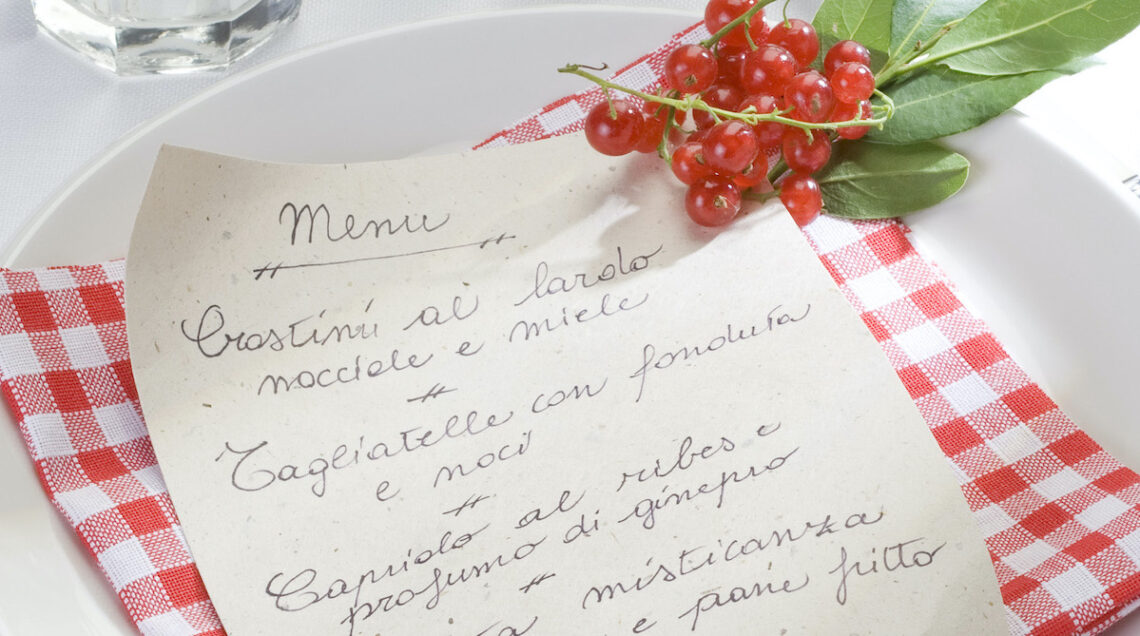 Menu
Crostini al lardo
nocciole e miele
Tagliatelle con fonduta
e noci
Capriolo al ribes e
profumo di ginepro
misticanza
e pane fritto